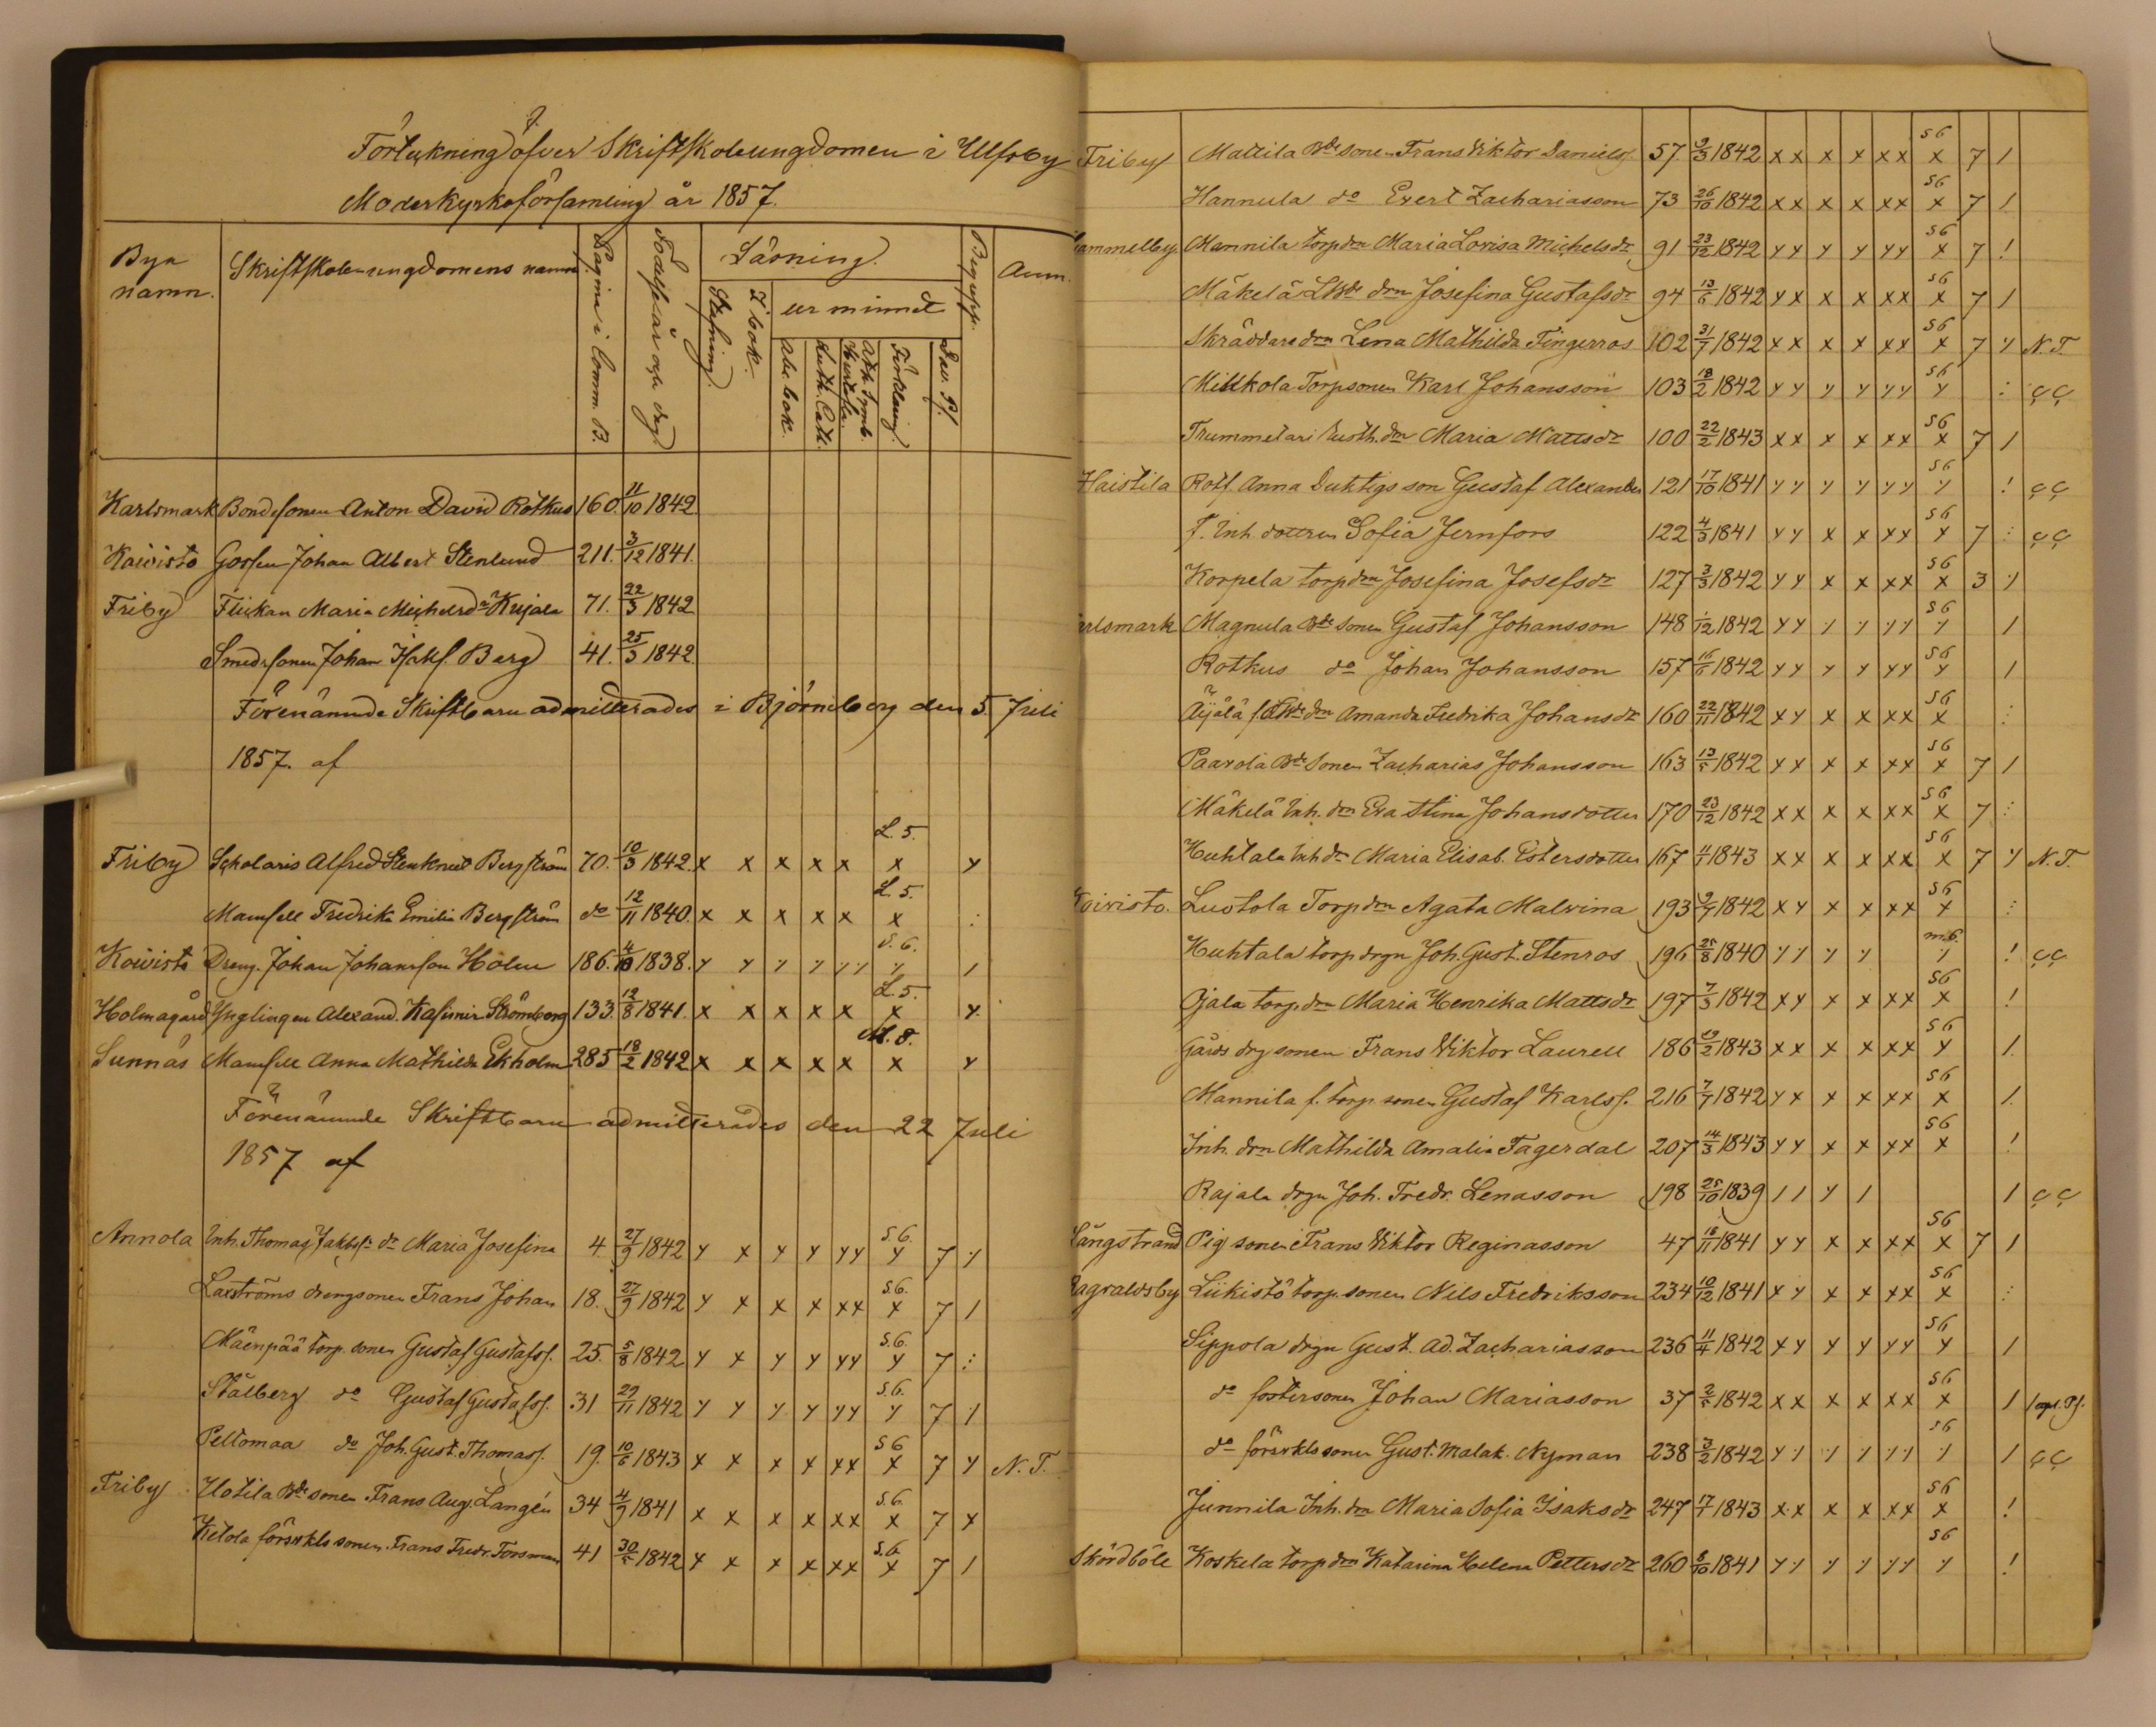 Förteckning öfver Skriftskoleungdomen i Ulfsby
Moderkyrkoförsamling år 1857.
Byn namn. Skriftskoleungdomens namn Pagina i Comm. B. Födelse år och dag Läsning. Begrepp. Anm.
Stafning. I bok. ur minnet
Abc bok. Luth. Cat. Ath. Symb. Hustafla. Förklaring. Dav. Ps.
Karlsmark Bondesonen Anton David Rotkus 160. 11/10 1842.
Koivisto Gossen Johan Albert Stenlund 211. 3/12 1841.
Friby Flickan Maria Michelsdr Kujala 71. 22/3 1842
Smedssonen Johan Isakss. Berg 41. 25/3 1842
Förenämnde Skriftbarn admitterades i Björneborg den 5. Juli
1857. af
L. 5.
Friby Scholaris Alfred Bergström 70. 10/3 1842. x x x x x x y
L. 5.
Mamsell Fredrika Emilia Bergström do 12/11 1840. x x x x x x :
S. 6.
Koivisto Dreng. Johan Johansson Holm 186. 4/10 1838. y y y y yy y /
L. 5.
Holmagård Ynglingen Alexand. Kasimir Strömberg 133. 12/8 1841. x x x x x x y.
M. 8.
Sunnäs Mamsell Anna Mathilda Ekholm 285 18/2 1842 x x x x x x y
Förenämnde Skriftbarn admitterades den 22 Juli
1857 af
Annola Inh. Thomas Jakobss. dr Maria Josefina 4. 27/9 1842 y x y y yy S.6. y 7 y
Laxströms drengsonen Frans Johan 18. 27/9 1842 y x x x xx S.6. x 7 /
Mäenpää torp. sonen Gustaf Gustafss. 25. 5/8 1842 y x y y yy S.6. y 7 :
Stålberg do Gustaf Gustafss. 31 29/11 1842 y y y y yy S.6. y 7 y
Peltomaa do Joh. Gust. Thomass. 19. 10/6 1843 x x x x xx S6 x 7 y N. T.
Friby Uotila Bde sonen Frans Aug. Langén 34 4/9 1841 x x x x xx S.6. x 7 x
Ketola försvkls sonen Frans Fredr. Forsman 41 30/5 1842 y x x x xx S.6. y 7 /
Friby Mattila Bde sonen Frans Viktor Daniels 57 9/3 1842 x x x x xx S6 x 7 /
Hannula do Evert Zachariasson 73 26/10 1842 x x x x xx S6 x 7 /
ammelby Mannila torp drn Maria Lovisa Michelsdr 91 23/12 1842 y y y y yy S6 x 7 !
Mäkelä drn Josefina Gustafsdr 94 13/6 1842 y x x x xx S6 x 7 /
Skräddare drn Lena Mathilda Fingerroos 102 31/7 1842 x x x x xx S6 x 7 y N.T.
Millkola Torpsonen Karl Johansson 103 18/2 1842 y y y y yy S6 y : çç
Trummetari drn Maria Mattsdr 100 22/2 1843 x x x x xx S6 x 7 /
Haistila Rotf. Anna Duktigs son Gustaf Alexander 121 17/10 1841 y y y y yy S6 y ! çç
F. Inh. dottren Sofia Jernfors 122 4/3 1841 y y x x xx S6 x 7 : çç
Korpela torp drn Josefina Josefsdr 127 3/3 1842 y y x x xx S6 x 3 y
rlsmark Magnula Bde sonen Gustaf Johansson 148 1/12 1842 y y y y yy S6 y /
Rotkus do Johan Johansson 157 16/6 1842 y y y y yy S6 y /
Äijälä drn Amanda Fredrika Johansdr 160 22/11 1842 x y x x xx S6 x :
Paavola Bde sonen Zacharias Johansson 163 13/5 1842 y x x x xx S6 x 7 /
Mäkelä Inh. drn Eva Stina Johansdotter 170 23/12 1842 x x x x xx S6 x 7 :
Huhtala Inh dr Maria Elisab. Estersdotter 167 11/1 1843 x x x x xx S6 x 7 y N.T.
oivisto. Luotola Torp drn Agata Malvina 193 9/7 1842 x y x x xx S6 x :
Huhtala torp drgn Joh. Gust. Stenros 196 25/8 1840 y y y y m6. y ! çç
Ojala torp. drn Maria Henrika Mattsdr 197 7/3 1842 x y x x xx S6 x !
Gårds drg sonen Frans Viktor Laurell 186 19/2 1843 x x x x xx S6 y /.
Mannila f. torp. sonen Gustaf Karlss. 216 7/7 1842 y x x x xx S6 x /.
Inh. drn Mathilda Amalia Fagerdal 207 14/3 1843 y y x x xx S6 x !
Rajala drgn Joh. Fredr. Lenasson 198 25/10 1839 / / y / / çç
Långstrand Pig sonen Frans Viktor Reginasson 47 18/11 1841 y y x x xx S6 x 7 /
agvaldsby Liikistö torp. sonen Nils Fredriksson 234 10/12 1841 x y x x xx S6 x :
Sippola drgn Gust. Ad. Zachariasson 236 11/4 1842 x y y y yy S6 y /
do fostersonen Johan Mariasson 37 2/5 1842 x x x x xx S6 x /
do försvkls sonen Gust. Malak. Nyman 238 3/2 1842 y y y y yy S6 y / çç
Junnila Inh. drn Maria Sofia Isaksdr 247 17/1 1843 x x x x xx S6 x !
Skördböle Koskela torp drn Katarina Helena Pettersdr 260 8/10 1841 y y y y yy S6 y !